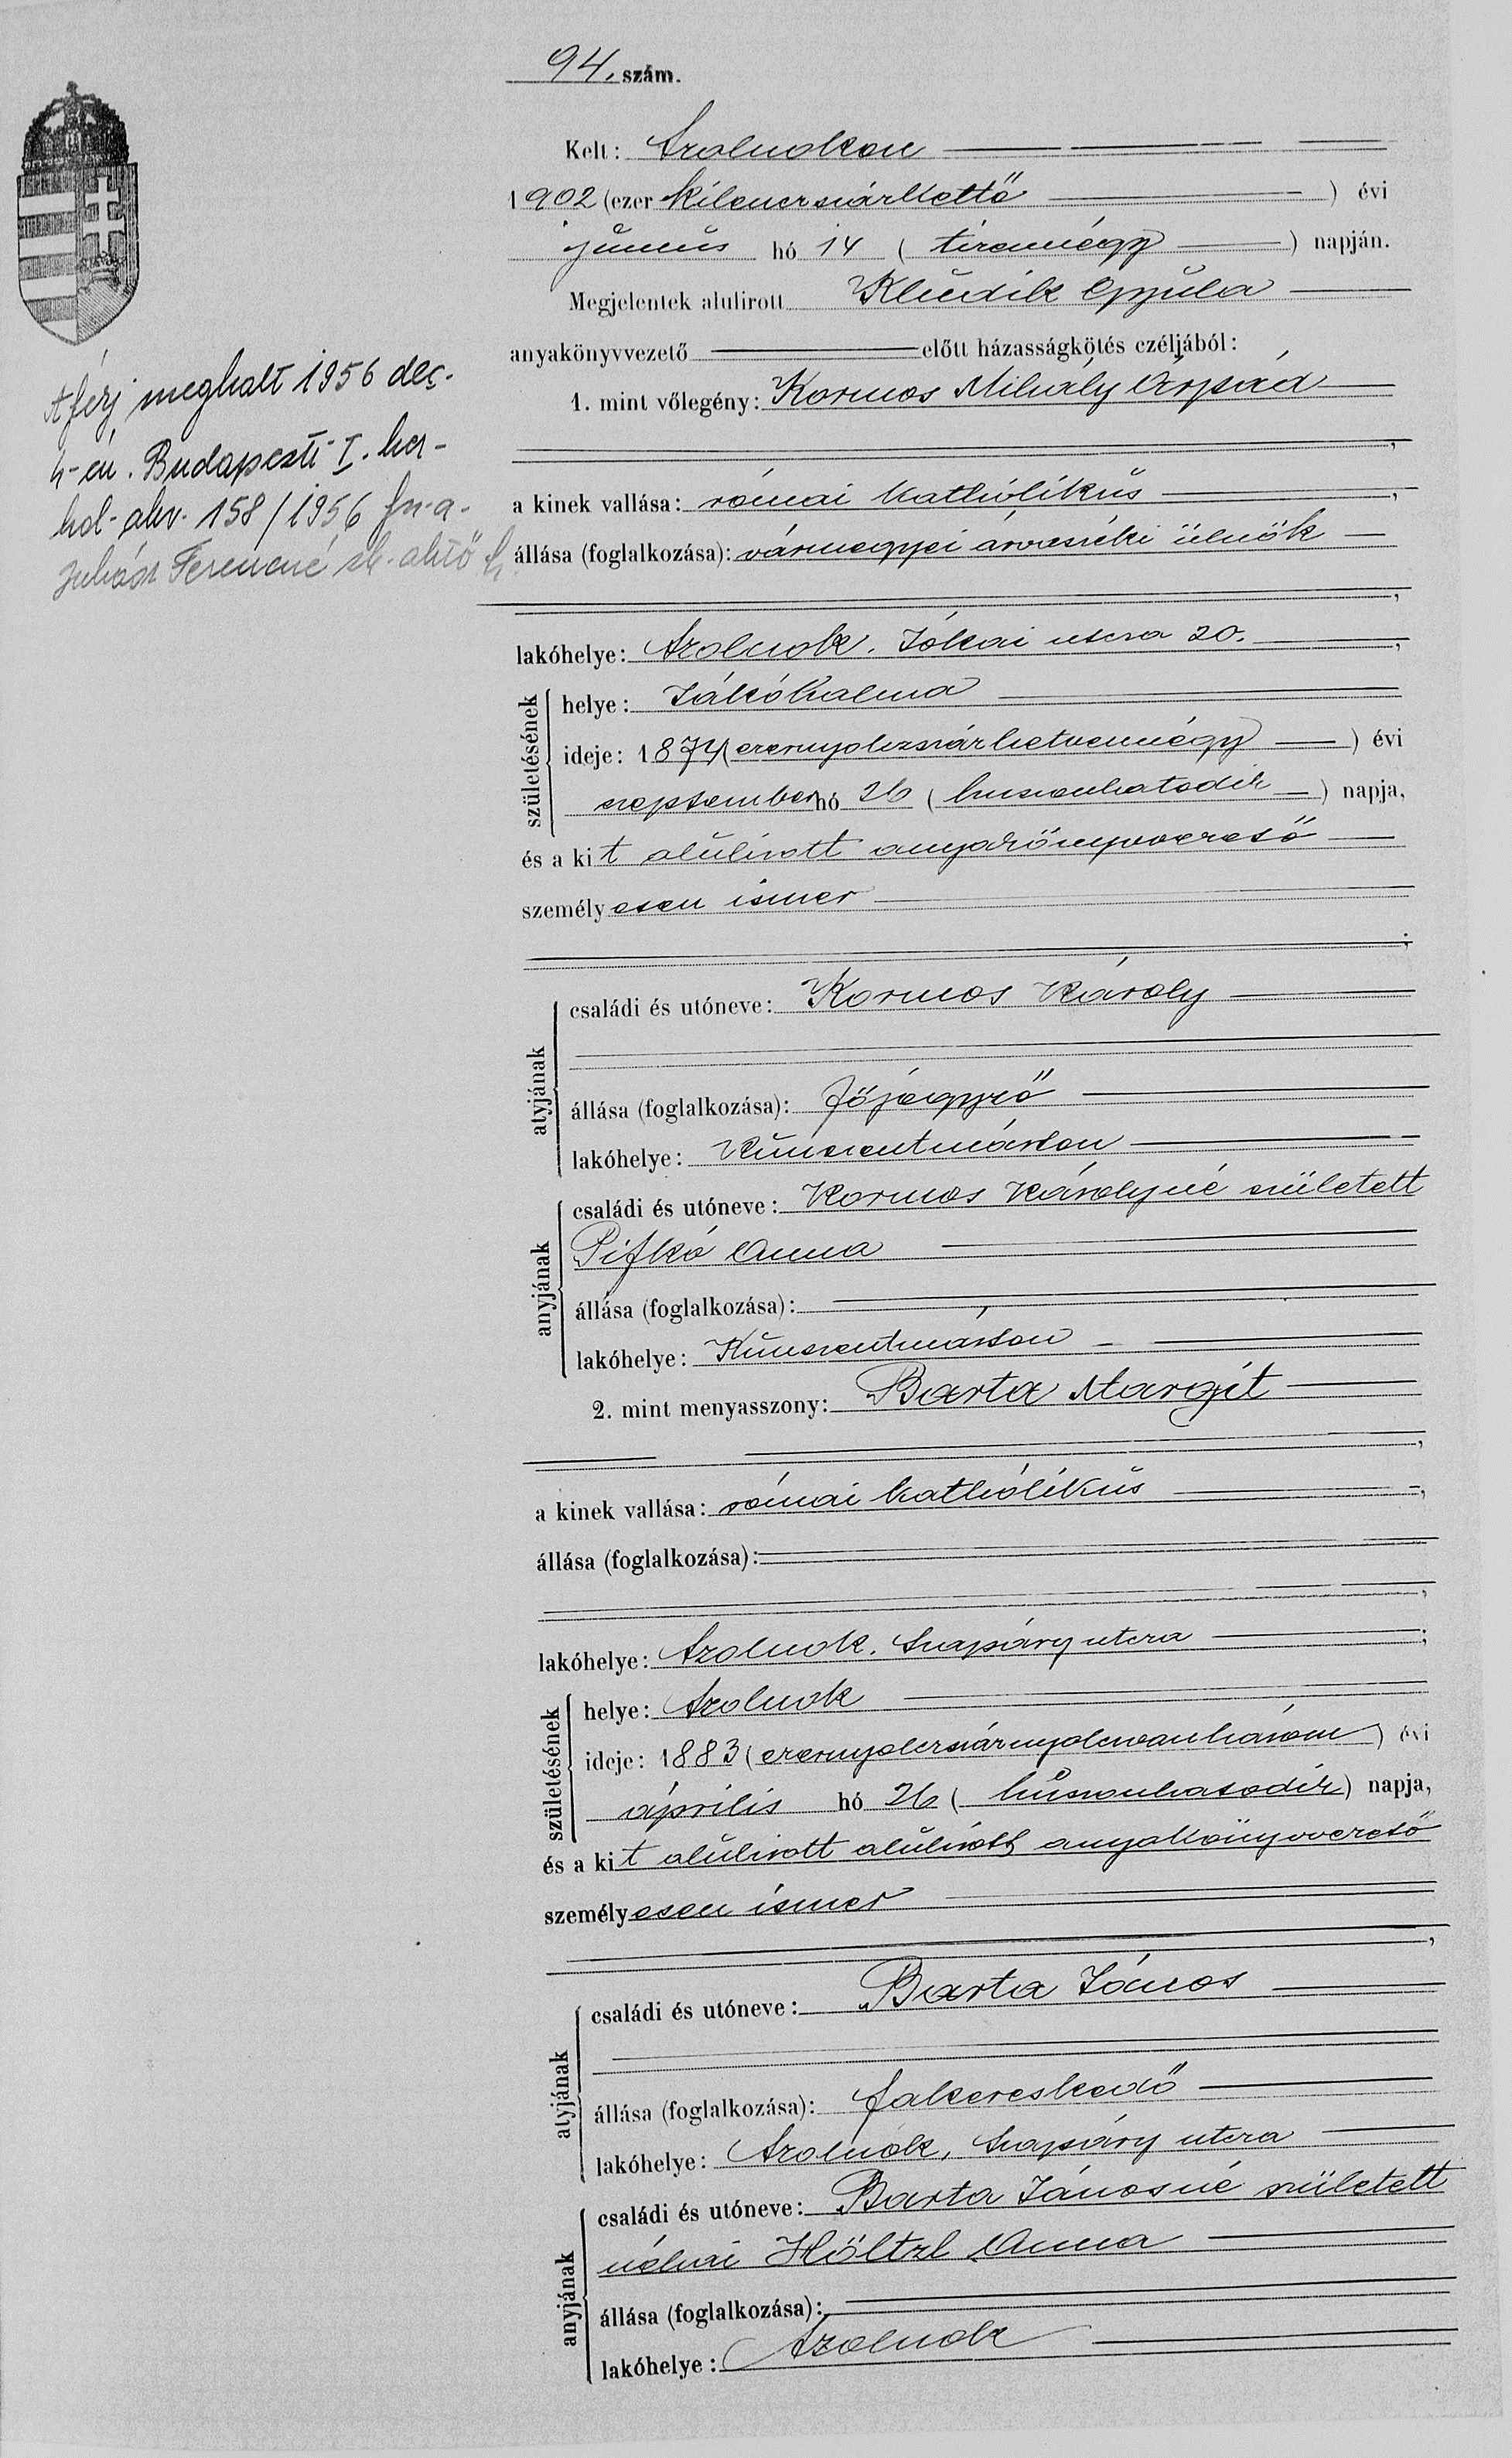 94. szám.
Kelt: Szolnokon
1902 (ezer kilencszázkettő) évi
június hó 14 (tizennégy) napján.
Megjelentek alulirott Kludik Gyula
anyakönyvvezető előtt házasságkötés czéljából:
1. mint vőlegény: Kormos Mihály Árpád
a kinek vallása: római katholikus
állása (foglalkozása): vármegyei árvaszéki ülnök
lakóhelye: Szolnok. Jókai utcza 20.
születésének
helye: Jákóhalma
ideje: 1874 (ezernyolczszázhetvennégy) évi
szeptember hó 26 (huszonhatodik) napja,
és a kit alulirott anyakönyvvezető
személyesen ismer
atyjának
családi és utóneve: Kormos Károly
állása (foglalkozása): főjegyző
lakóhelye: Kunszentmárton
anyjának
családi és utóneve: Kormos Károlyné született
Pifkó Anna
állása (foglalkozása):
lakóhelye: Kunszentmárton
2. mint menyasszony: Barta Margit
a kinek vallása: római katholikus
állása (foglalkozása):
lakóhelye: Szolnok. Szapáry utcza
születésének
helye: Szolnok
ideje: 1883 (ezernyolczszáznyolczvanhárom) évi
április hó 26 (huszonhatodik) napja,
és a kit alulirott alulirott anyakönyvvezető
személyesen ismer
atyjának
családi és utóneve: Barta János
állása (foglalkozása): fakereskedő
lakóhelye: Szolnok, Szapáry utcza
anyjának
családi és utóneve: Barta Jánosné született
néhai Höltzl Anna
állása (foglalkozása):
lakóhelye: Szolnok
A férj meghalt 1956 dec.
4-én. Budapesti I. ker-
hal-akv. 158/1956 fsz-a-
Juhász Ferencné sk.